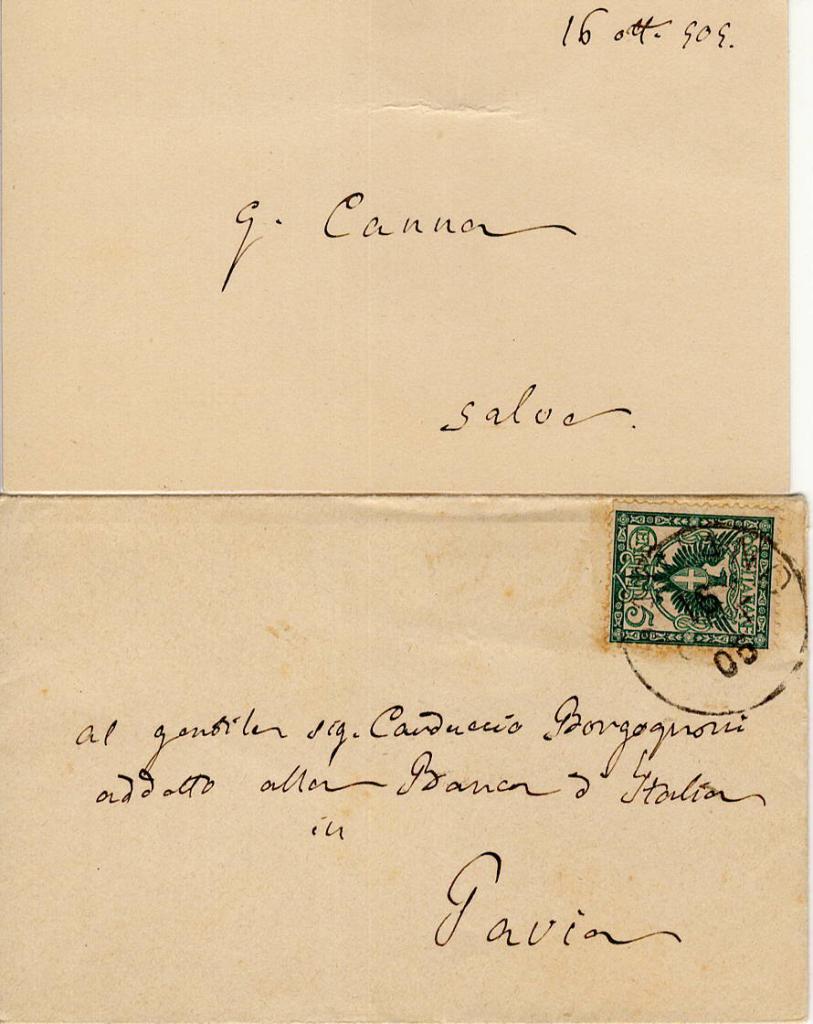 16 ott. 905.
G. Canna
salve.
5
05
al gentile sig. Carduccio Borgognoni
addetto alla Banca d'Italia
in
Pavia